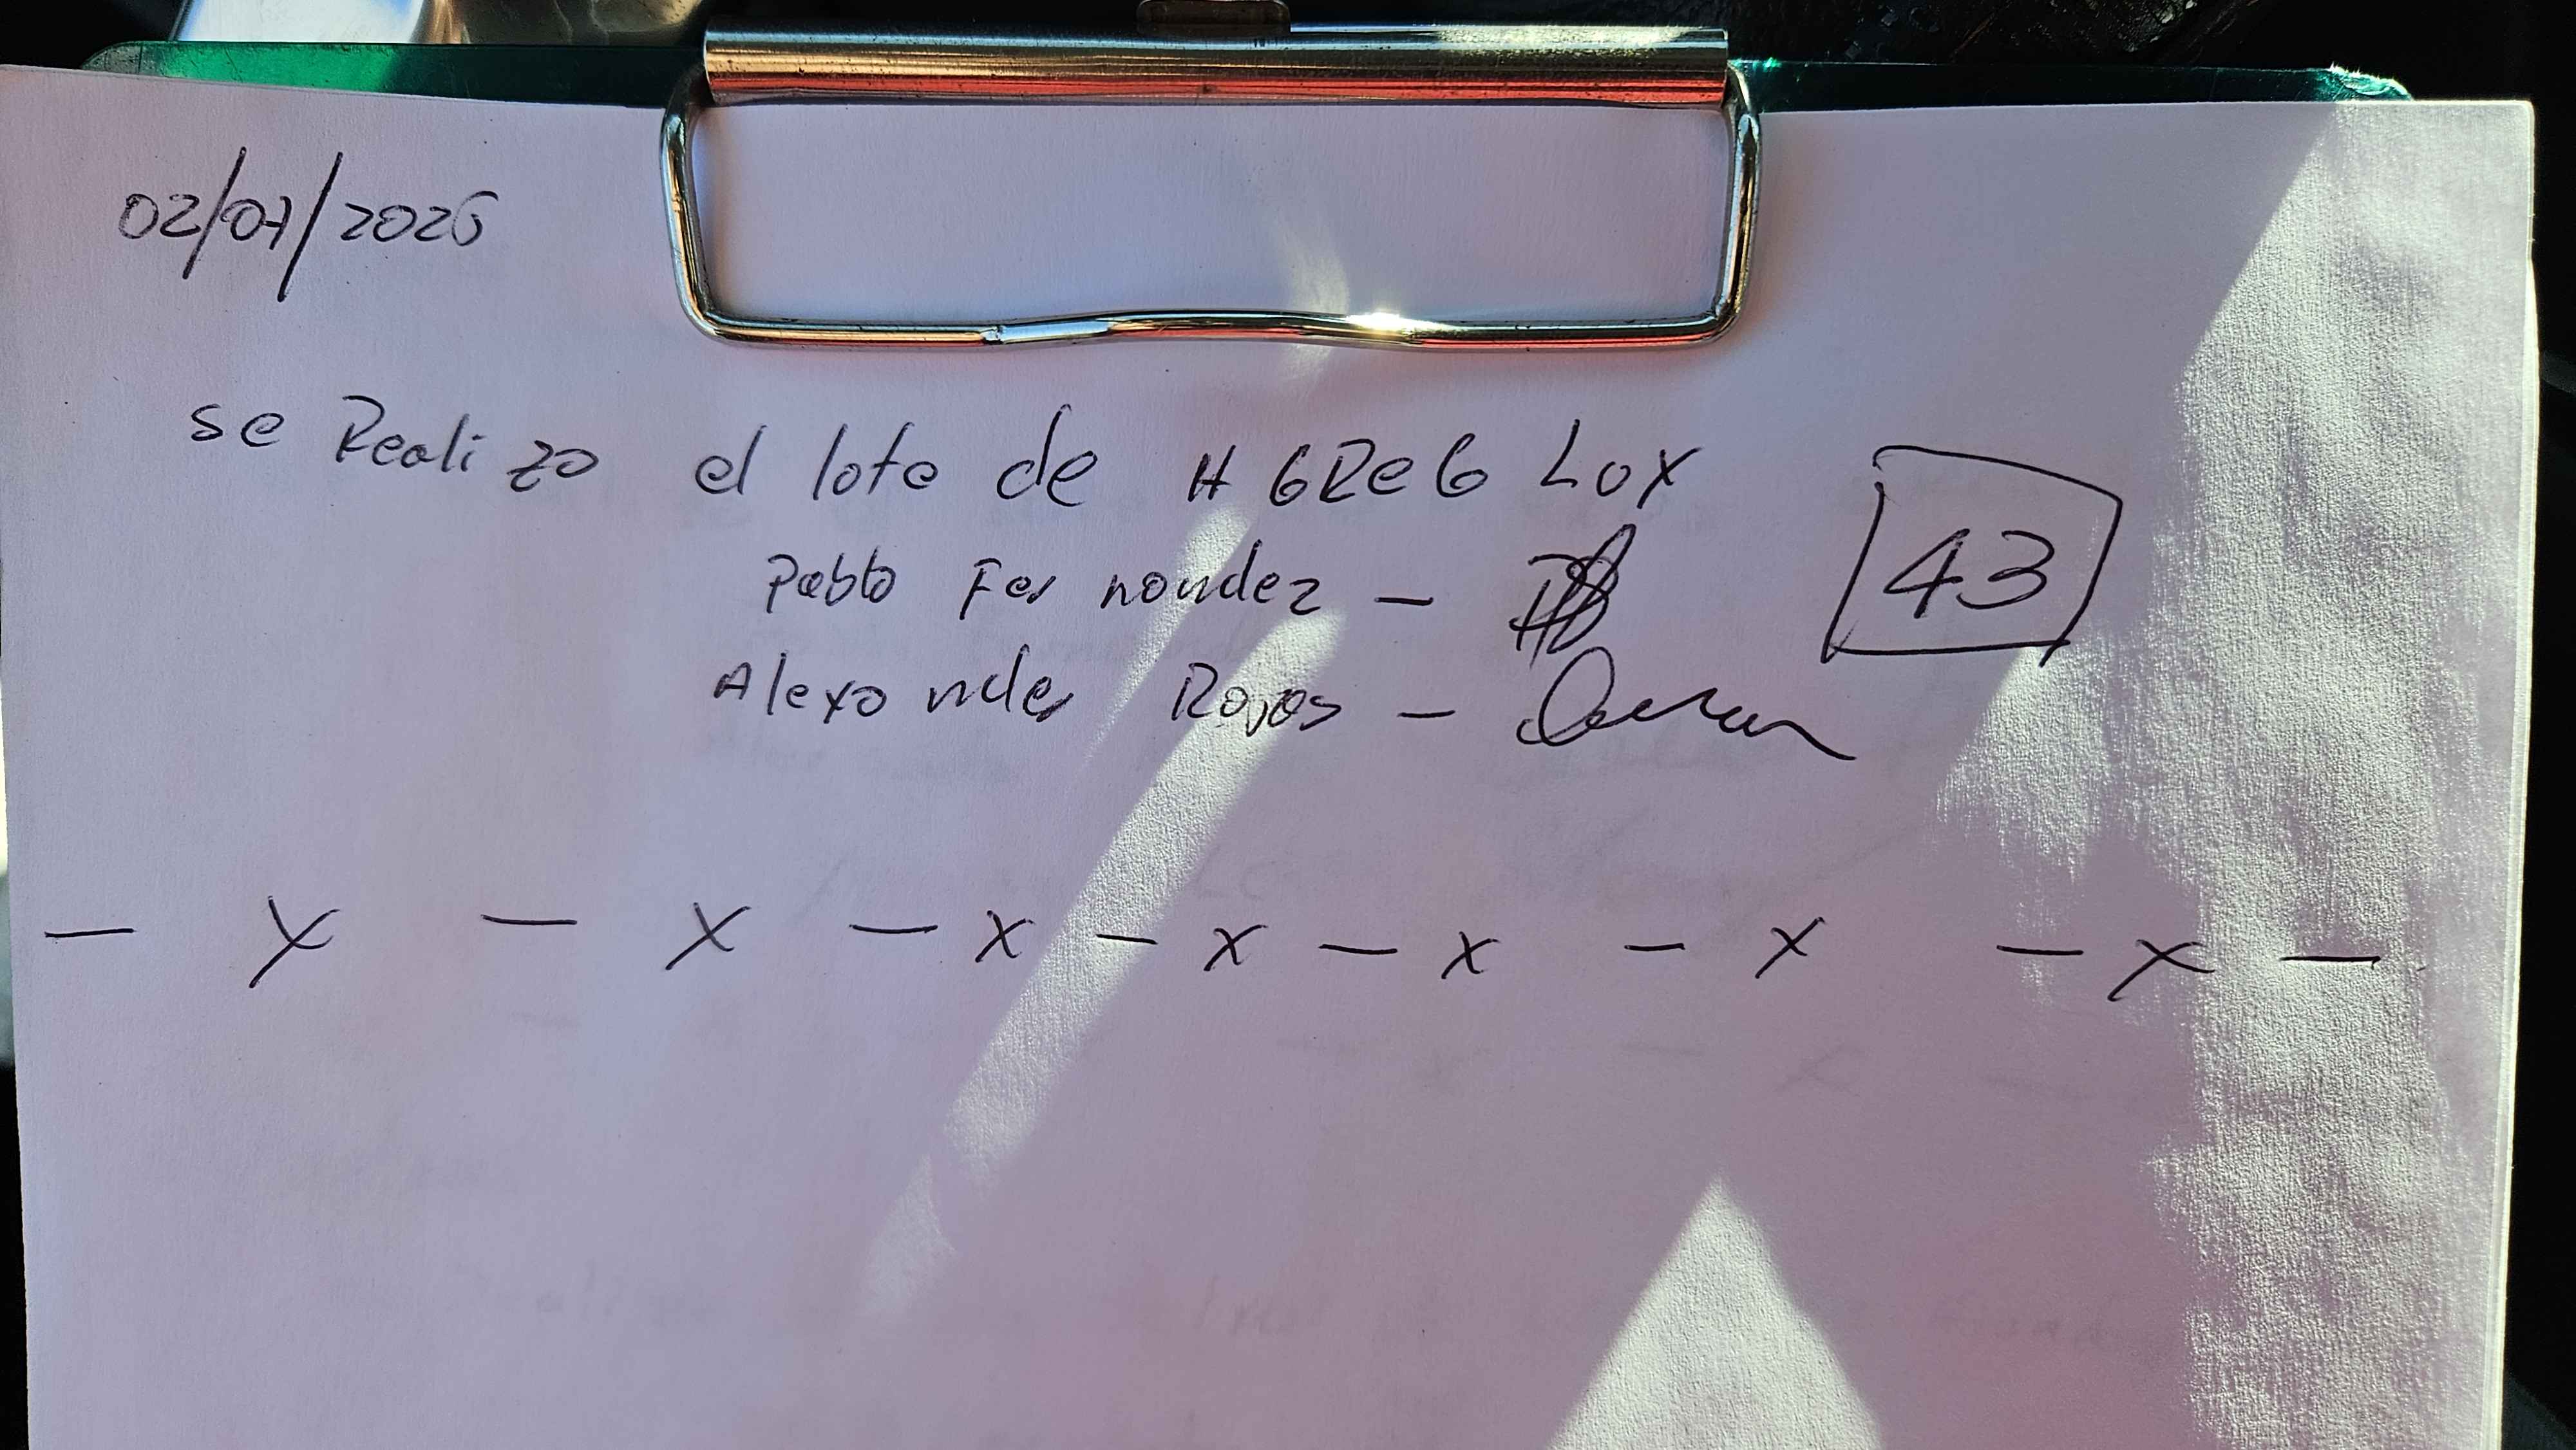 02/07/2026
se Realizo el lote de HGReG Lux
43
Pablo Fernandez -
Alexander Rojas -
- x - x - x - x - x - x - x -